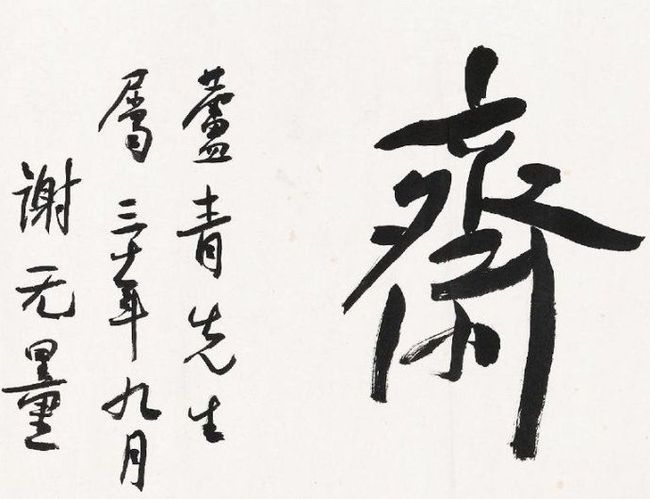 齋
蘆青先生
屬 三十年九月
謝无量